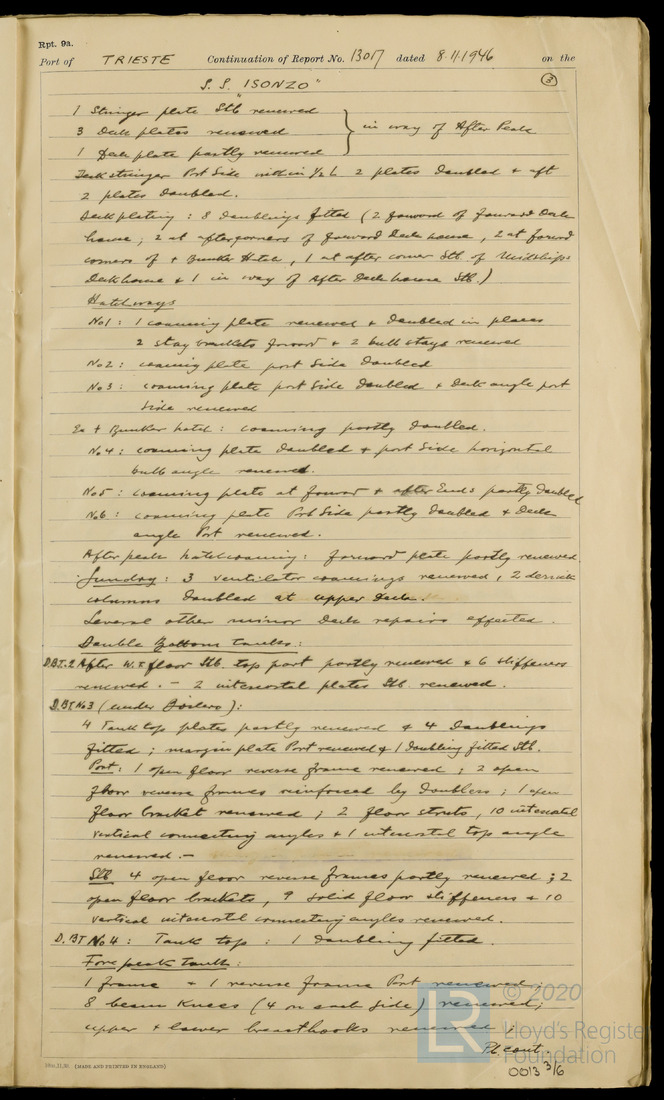 Rpt. 9a.
Port of TRIESTE Continuation of Report No. 13017 dated 8.11.1946 on the
S.S. "ISONZO" 3
1 Stringer plate Stb renewed
3 Deck plates renewed } in way of After Peak
1 Deck plate partly renewed
Deck stringer Port Side within 1/2 L 2 plates doubled & aft
2 plates doubled.
Deck plating : 8 doublings fitted (2 forward of forward Deck
house ; 2 at after corners of forward Deck house , 2 at forwd
corners of Bunker Hatch , 1 at after corner Stb. of Midships
Deck house & 1 in way of After Deck house Stb.)
Hatchways
No1 : 1 coaming plate renewed & doubled in places
2 stay brackets forward & 2 bulb stays renewed
No2 : coaming plate port Side doubled
No3 : coaming plate port Side doubled & deck angle port
Side renewed
Bunker hatch : coaming partly doubled.
No4 : coaming plate doubled & port Side horizontal
bulb angle renewed.
No5 : coaming plate at forward & after Ends partly doubled
No6 : coaming plate Port Side partly doubled & Deck
angle Port renewed.
After peak hatch coaming : forward plate partly renewed.
Sunday : 3 ventilator coamings renewed , 2 derrick
columns doubled at upper deck.
Several other minor deck repairs effected.
Double Bottom tanks :
D.B.T.2 After W.T. floor Stb. top part partly renewed & 6 stiffeners
renewed. - 2 intercostal plates Stb. renewed.
D.BT No3 (under Boilers) :
4 Tank top plates partly renewed & 4 doublings
fitted ; margin plate Port renewed & 1 doubling fitted Stb.
Port : 1 open floor reverse frame renewed ; 2 open
floor reverse frames reinforced by doublers ; 1 open
floor bracket renewed ; 2 floor struts , 10 intercostal
vertical connecting angles & 1 intercostal top angle
renewed. -
Stb 4 open floor reverse frames partly renewed ; 2
open floor brackets , 9 solid floor stiffeners & 10
vertical intercostal connecting angles renewed.
D.BT No4 : Tank top : 1 doubling fitted.
Fore peak tank :
1 frame & 1 reverse frame Port renewed ;
8 beam knees (4 on each side) renewed ;
upper & lower breasthooks renewed ;
cont.
(MADE AND PRINTED IN ENGLAND)
0013 3/6
LR © 2020
Lloyd's Register
Foundation